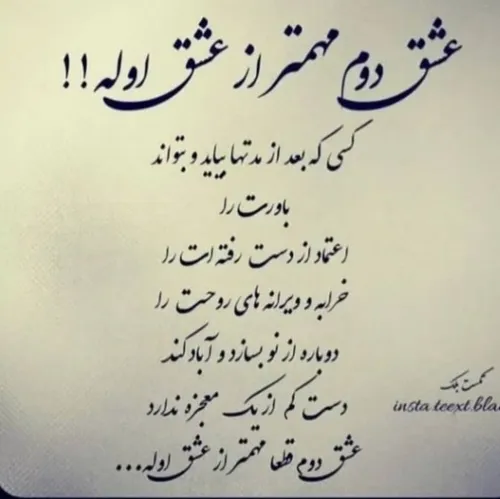 عشق دوم مهمتر از عشق اوله!!
کسی که بعد از مدتها بیاید و بتواند
باورت را
اعتماد از دست رفته ات را
خرابه و ویرانه های روحت را
دوباره از نو بسازد و آباد کند
دست کم از یک معجزه ندارد
عشق دوم قطعا مهمتر از عشق اوله...
تکست بلک
insta.teext.bla